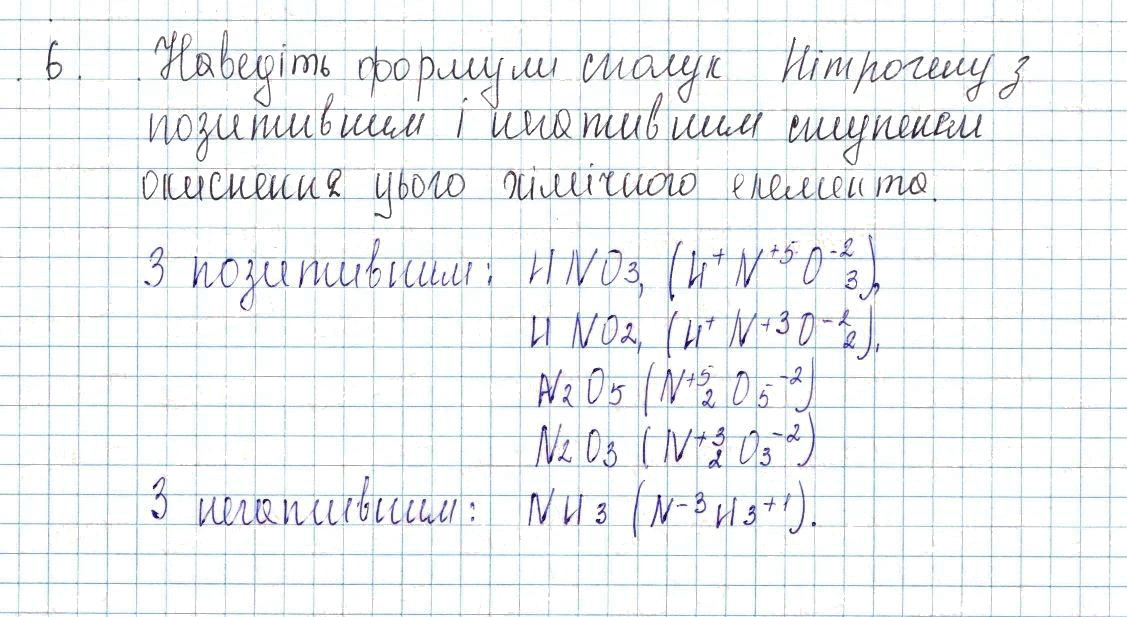 6. Наведіть формули сполук Нітрогену з
позитивним і негативним ступенем
окиснення цього хімічного елемента.
З позитивним: HNO₃, (H⁺N⁺⁵O⁻²₃),
HNO₂, (H⁺N⁺³O⁻²₂).
N₂O₅ (N⁺⁵₂O₅⁻²)
N₂O₃ (N⁺³₂O₃⁻²)
З негативним: NH₃ (N⁻³H₃⁺¹).